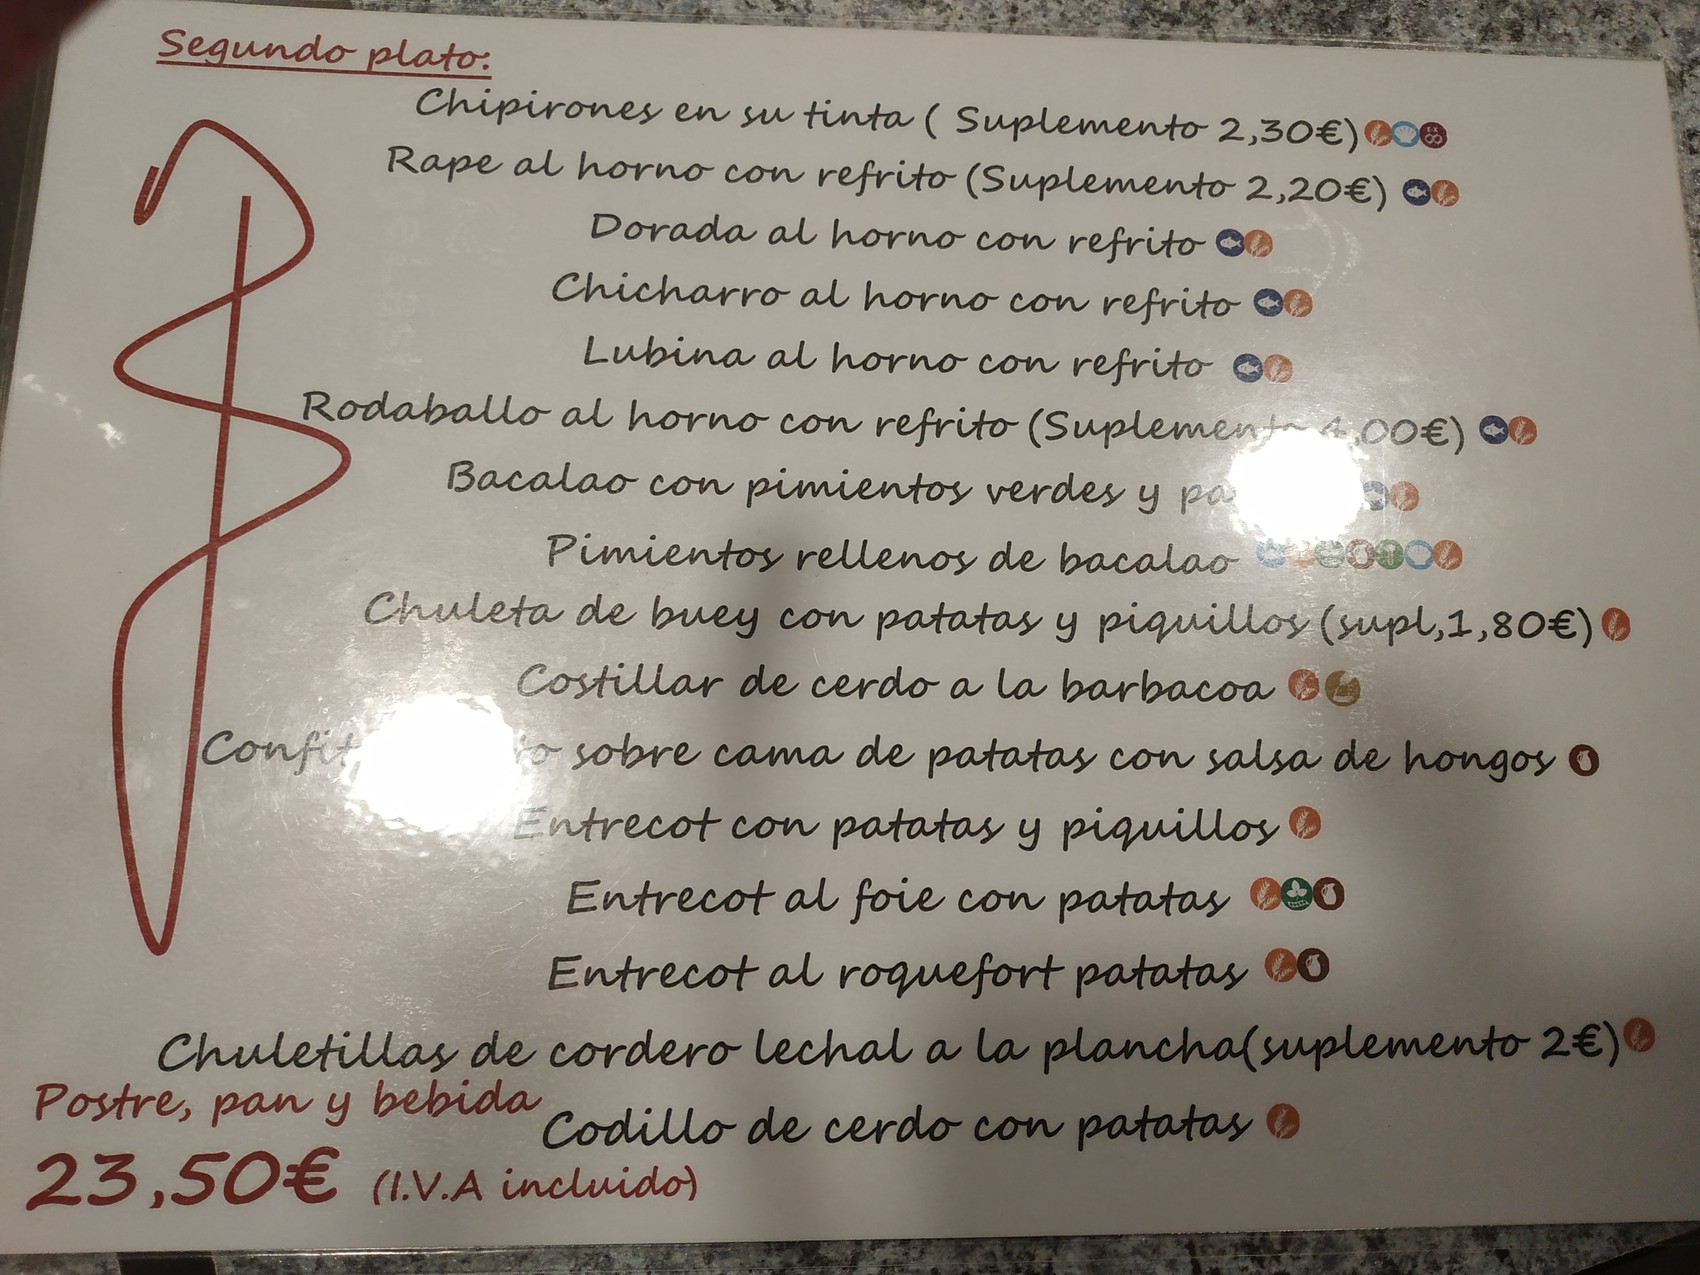 Segundo plato:
Chipirones en su tinta ( Suplemento 2,30€)
Rape al horno con refrito (Suplemento 2,20€)
Dorada al horno con refrito
Chicharro al horno con refrito
Lubina al horno con refrito
Rodaballo al horno con refrito (Suplemento 4,00€)
Bacalao con pimientos verdes y
Pimientos rellenos de bacalao
Chuleta de buey con patatas y piquillos (supl,1,80€)
Costillar de cerdo a la barbacoa
sobre cama de patatas con salsa de hongos
Entrecot con patatas y piquillos
Entrecot al foie con patatas
Entrecot al roquefort patatas
Chuletillas de cordero lechal a la plancha(suplemento 2€)
Codillo de cerdo con patatas
Postre, pan y bebida
23,50€ (I.V.A incluido)